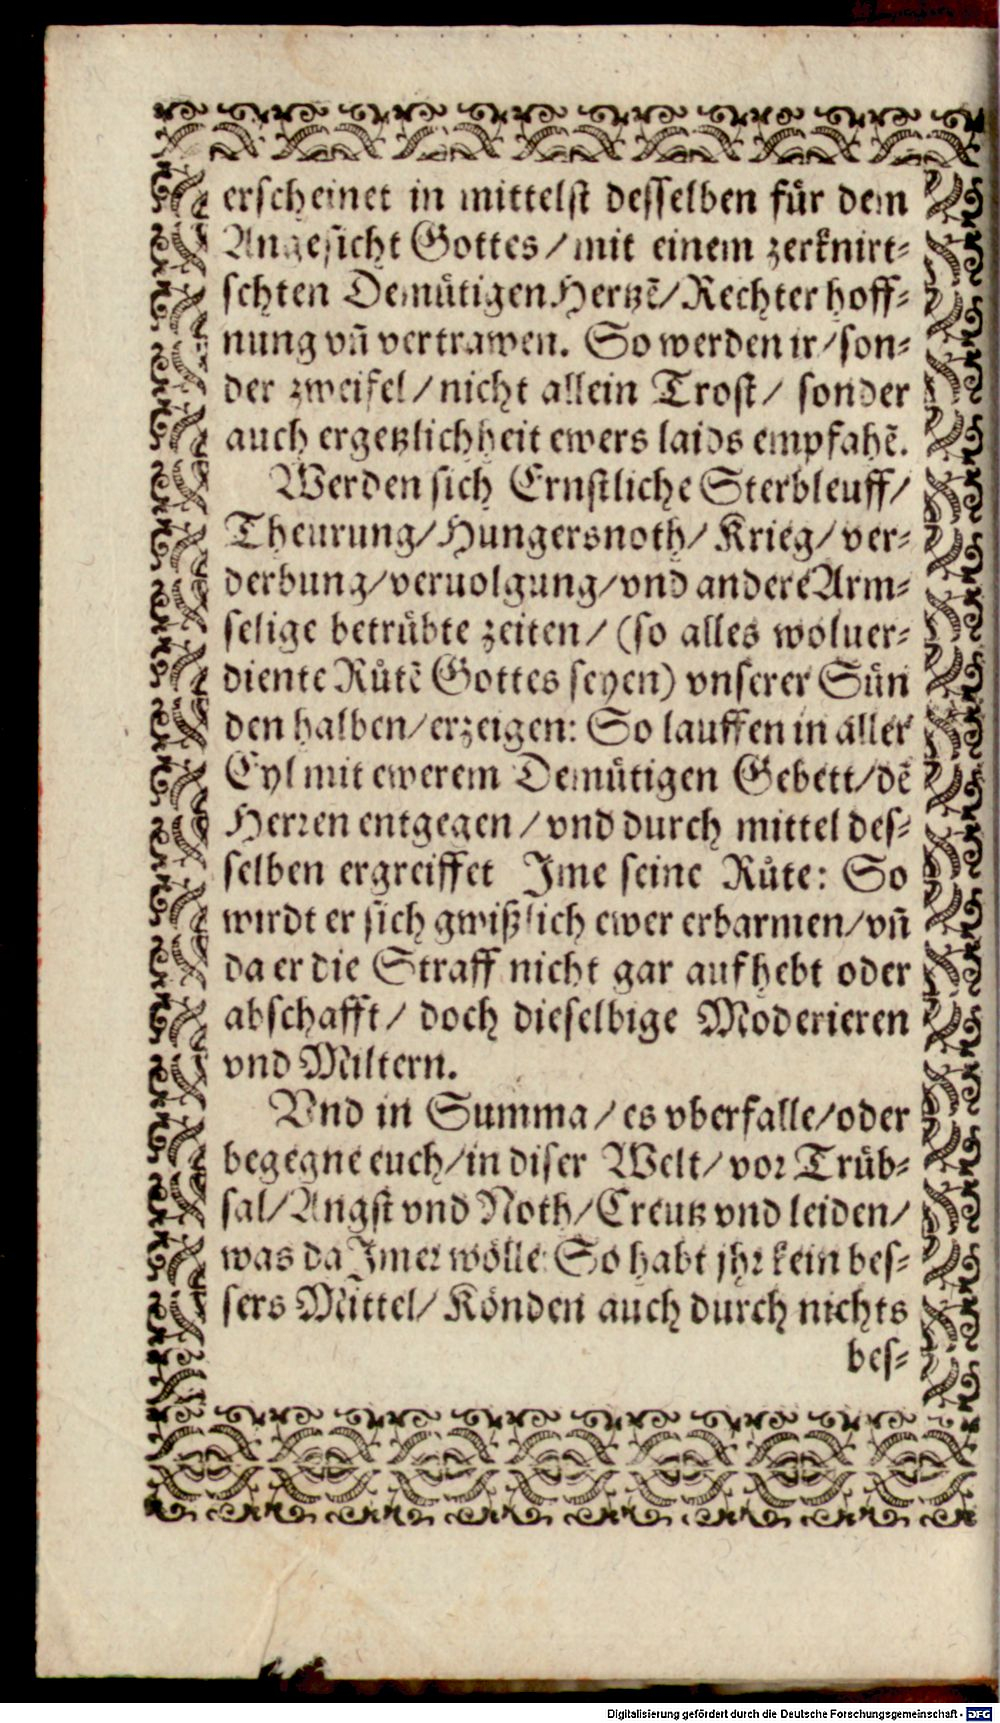 erscheinet in mittelst desselben für dem
Angesicht Gottes / mit einem zerknirt-
schten Demütigen Hertzẽ / Rechter hoff-
nung vñ vertrawen. So werden ir / son-
der zweifel / nicht allein Trost / sonder
auch ergetzlichheit ewers laids empfahẽ.
Werden sich Ernstliche Sterbleuff /
Theurung / Hungersnoth / Krieg / ver-
derbung / veruolgung / vnd andere Arm-
selige betrübte zeiten / (so alles woluer-
diente Růtẽ Gottes seyen) vnserer Sün
den halben / erzeigen: So lauffen in aller
Eyl mit ewerem Demütigen Gebett / dẽ
Herren entgegen / vnd durch mittel des-
selben ergreiffet Jme seine Růte: So
wirdt er sich gwißlich ewer erbarmen / vñ
da er die Straff nicht gar aufhebt oder
abschafft / doch dieselbige Moderieren
vnd Miltern.
Vnd in Summa / es vberfalle / oder
begegne euch / in diser Welt / vor Trüb-
sal / Angst vnd Noth / Creutz vnd leiden /
was da Jmer wölle: So habt jhr kein bes-
sers Mittel / Könden auch durch nichts
bes-
Digitalisierung gefördert durch die Deutsche Forschungsgemeinschaft - DFG